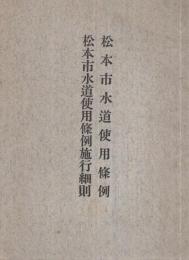 松本市水道使用條例
松本市水道使用條例施行細則